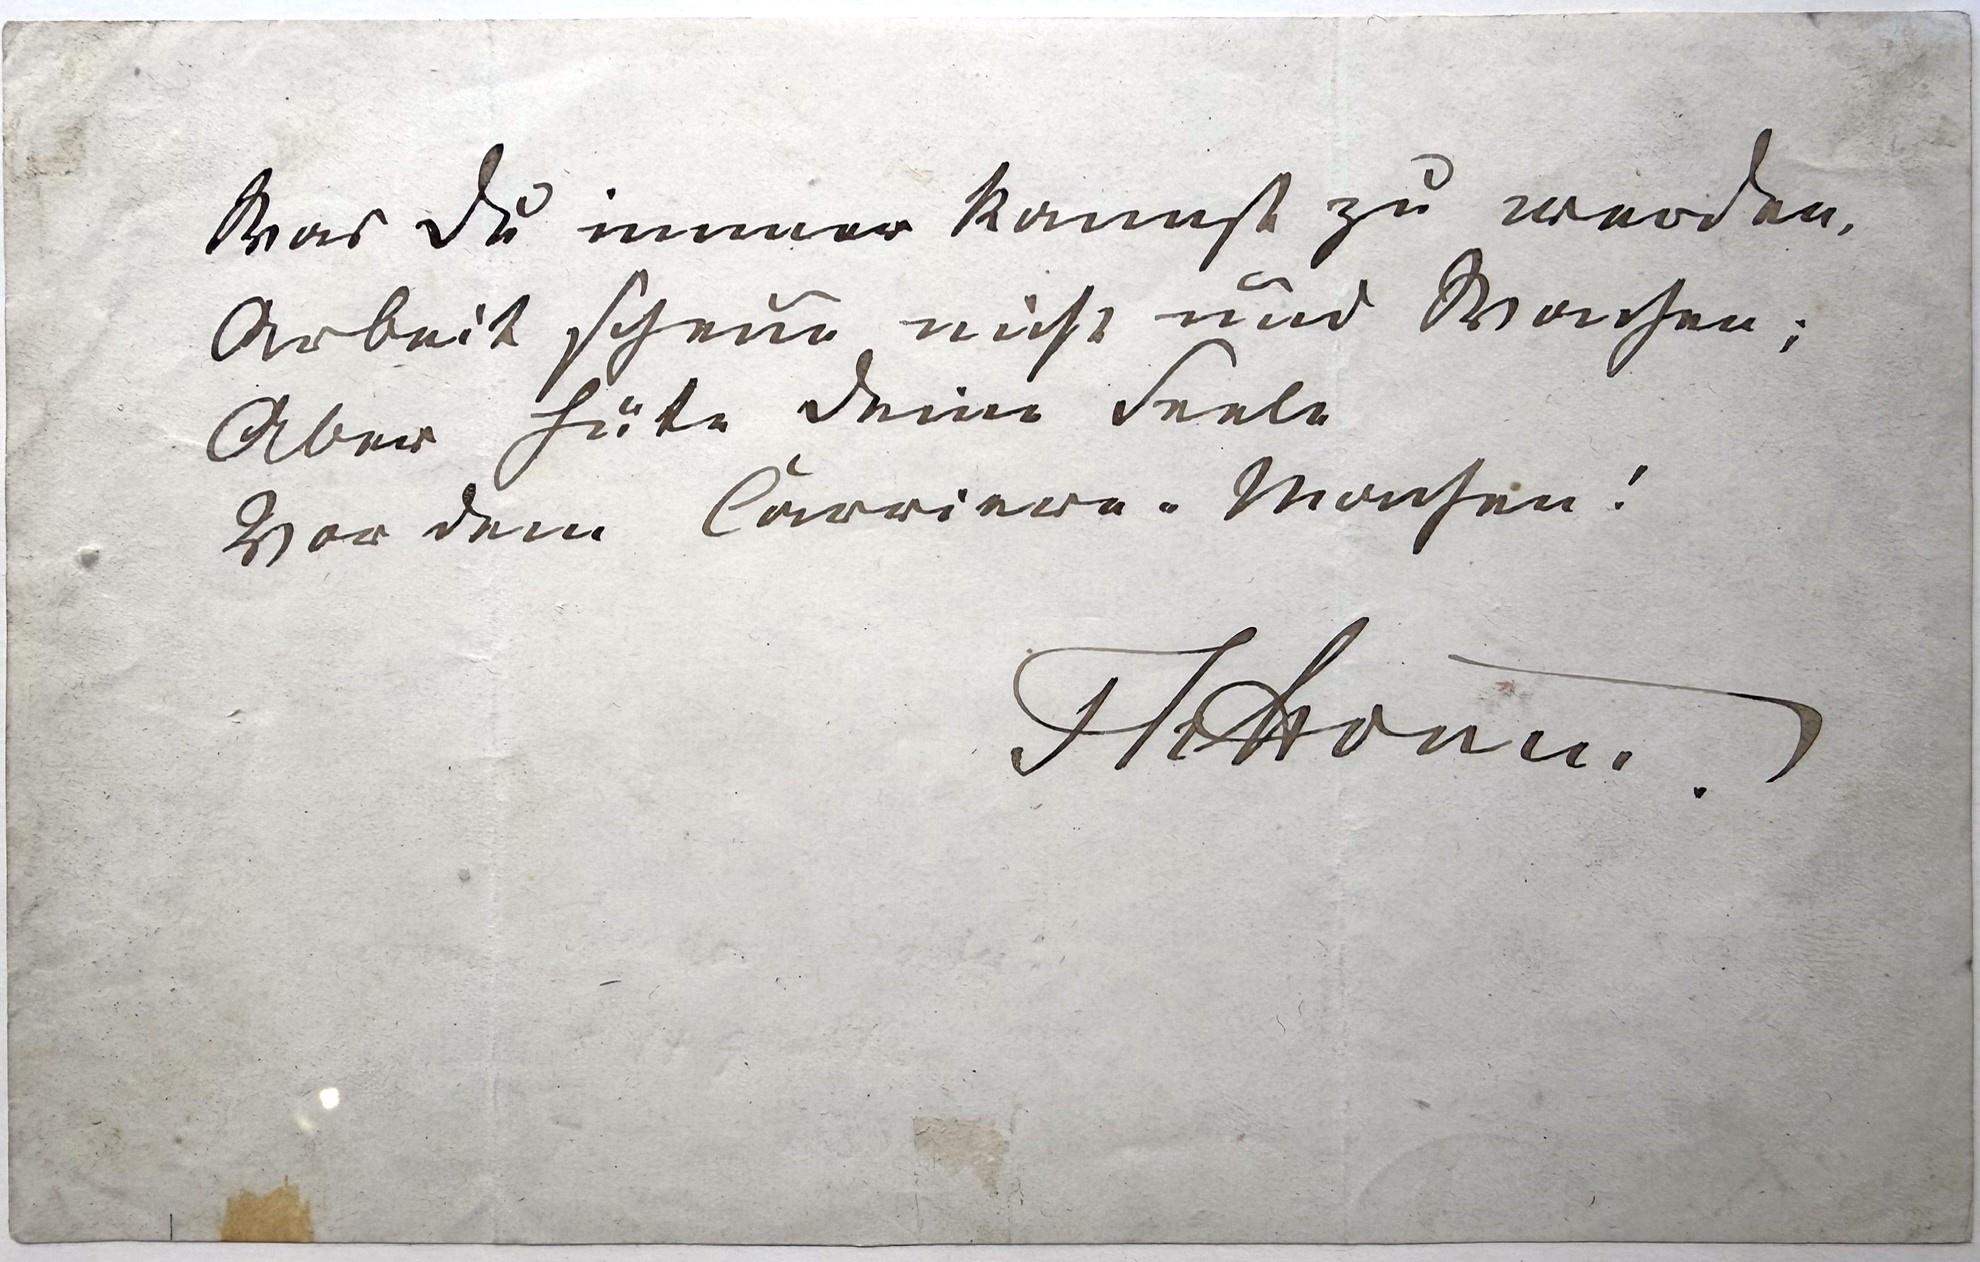 Was Du immer kannst zu werden,
Arbeit scheue nicht und Wachen;
Aber hüte deine Seele
Vor dem Carriere-Machen!
ThStorm.